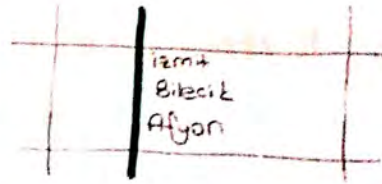 izmit
Bilecik
Afyon